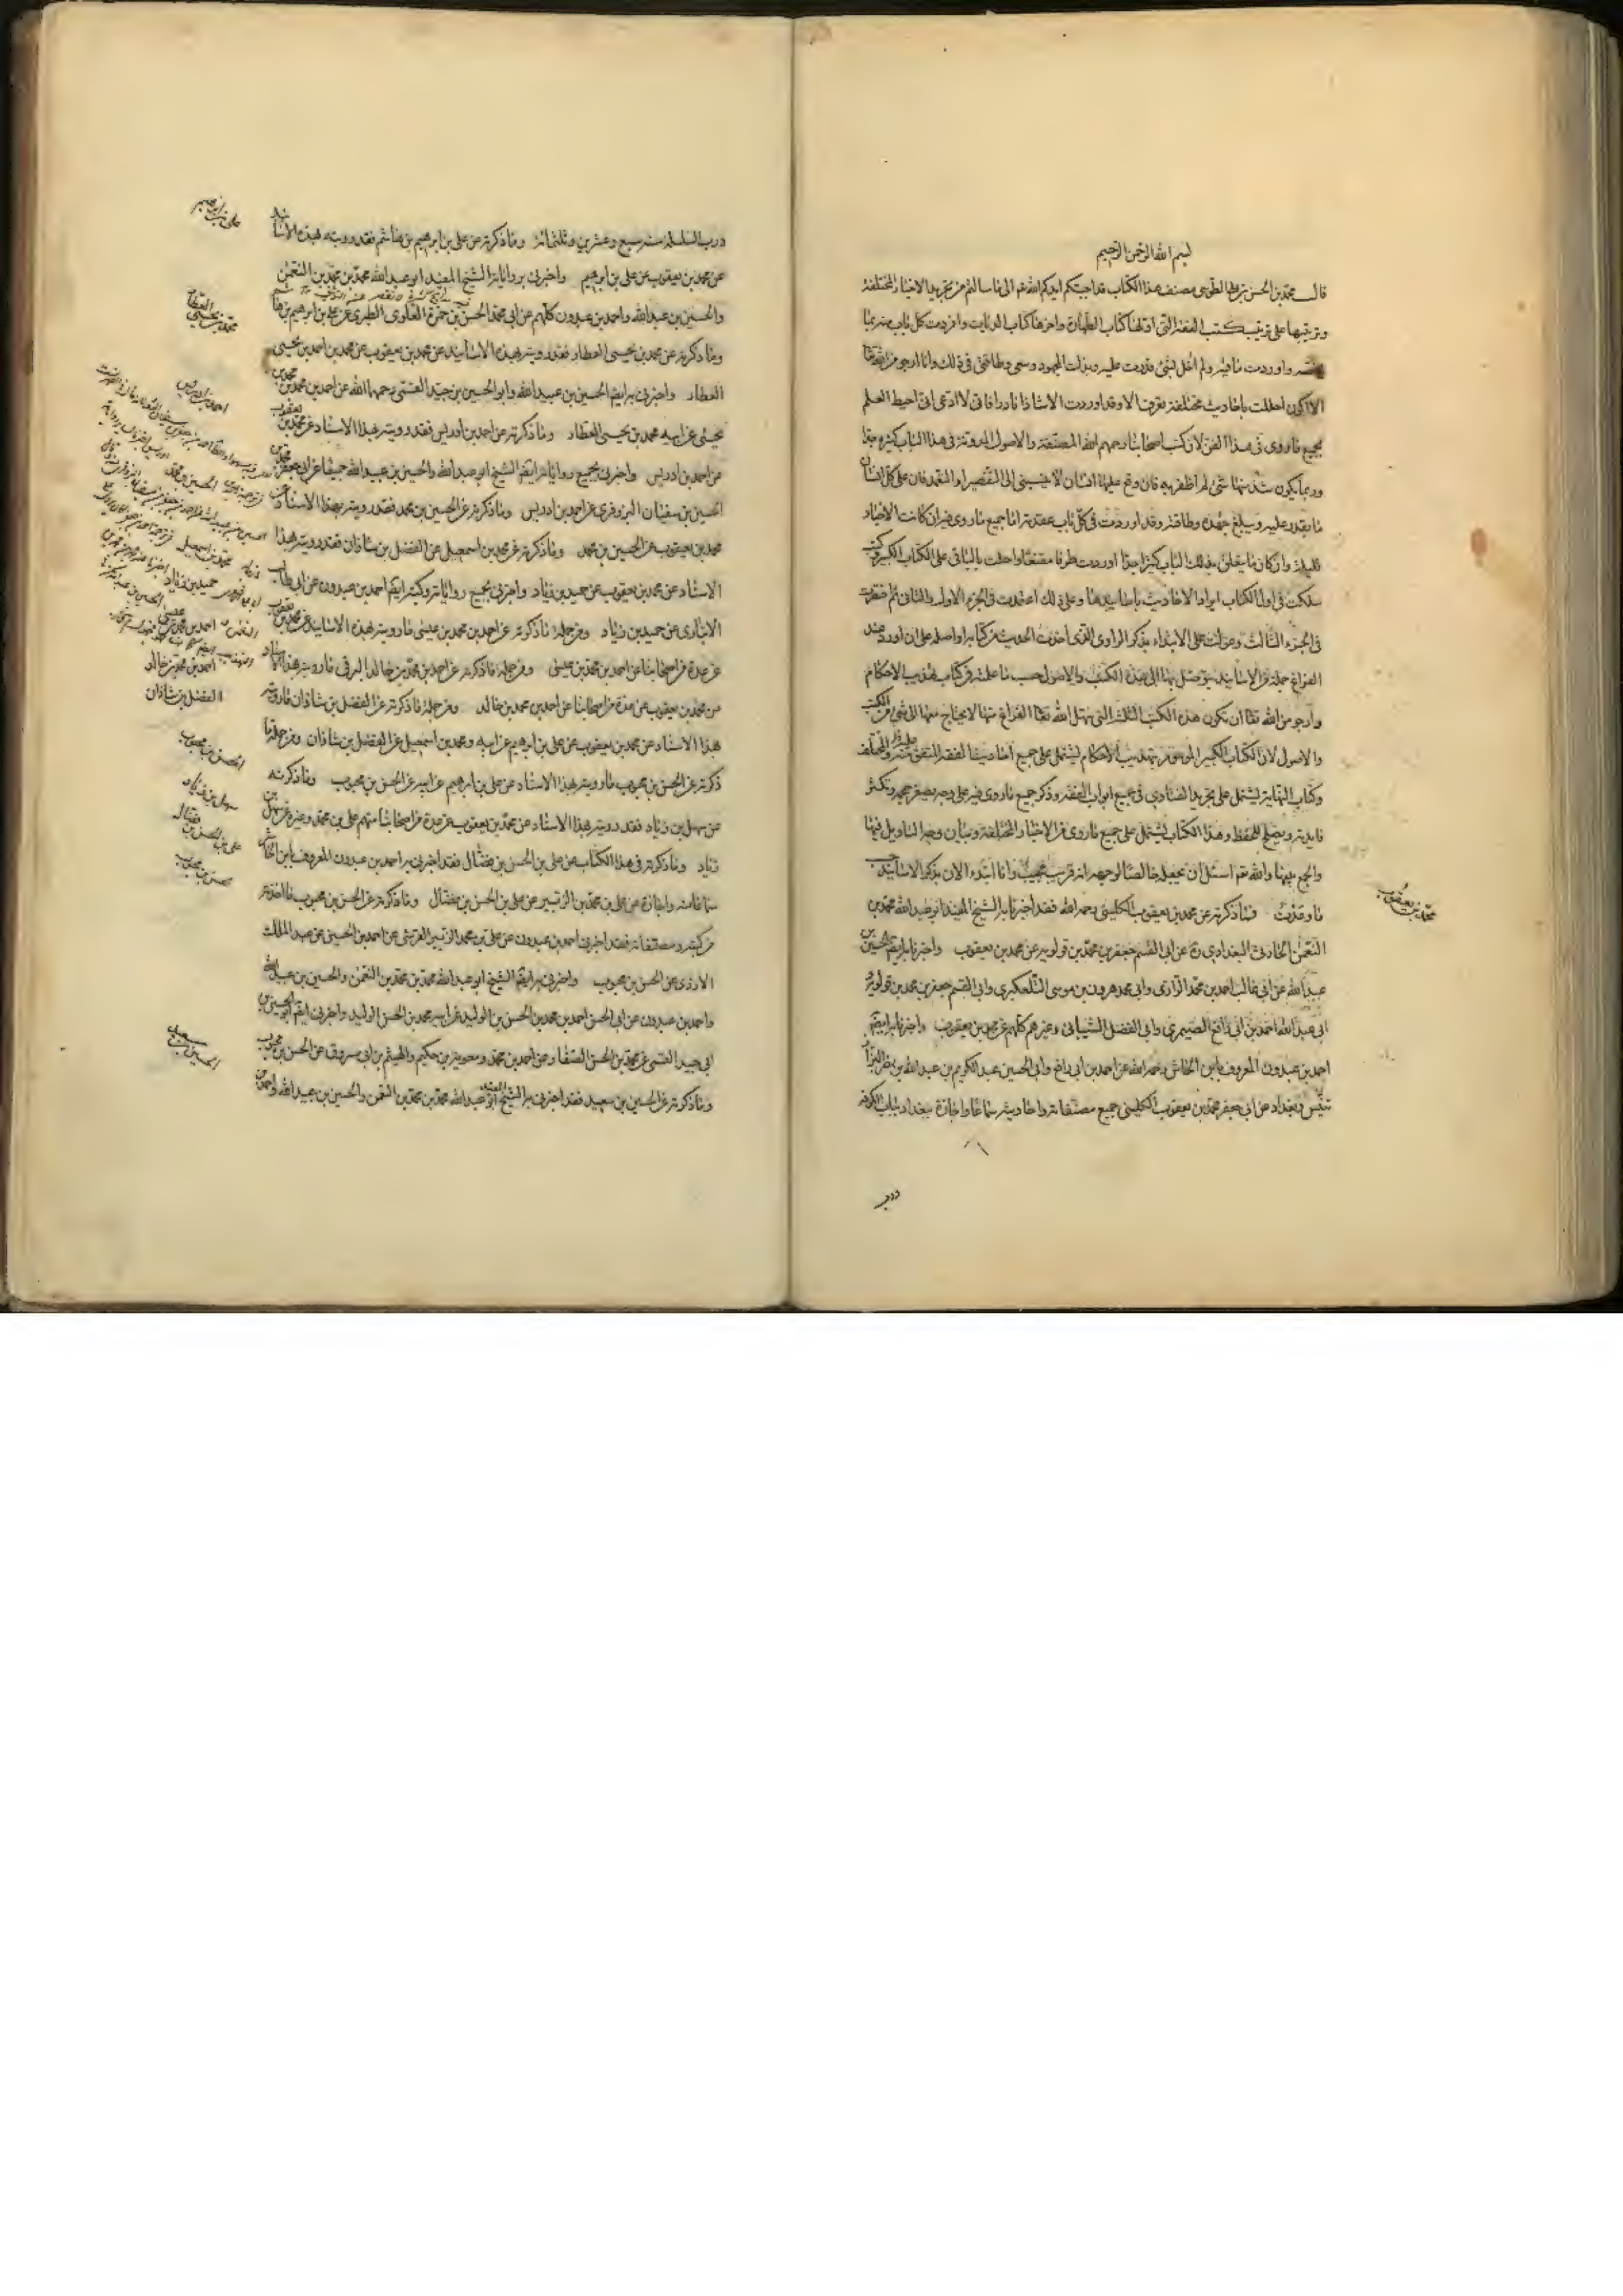 بسم الله الرحمن الرحيم
قال محمد بن الحسن بن علي الطوسي مصنف هذا الكتاب قد اجبتكم ايدكم الله تم الى ما سالتم من تجريد الاخبار المختلفة
وترتيبها على ترتيب كتب الفقه التي اولها كتاب الطهارة واخرها كتاب الديات وافردت كل باب منه بما
واوردت ما فيه ولم اخل بشئ قدرت عليه وبذلت المجهود وسعى وطاقتي في ذلك وانا ارجو من الله تعا
الا اكون اخللت باحاديث مختلفة تعرف الا وقد اوردت الا شاذا نادرا فاني لا ادعى اني احيط العلم
بجميع ما روى في هذا الفن لان كتب اصحابنا رحمهم الله المصنفة والاصول المدونة في هذا الباب كثيرة جدا
وربما يكون شذ منها شئ لم اظفر به فان وقع عليها انسان لا ينسبني الى التقصير او التعمد فان على كل انسان
ما يقدر عليه ويبلغ جهده وطاقته وقد اوردت في كل باب عقدته اما جميع ما روى فيه ان كانت الاخبار
قليلة وان كان ما يتعلق بذلك الباب كثيرا جدا اوردت طرفا مقنعا واحلت بالباقى على الكتاب الكبير وكنت
سلكت في اول الكتاب ايراد الاحاديث باسانيدها وعلى ذلك اعتمدت في الجزء الاول والثاني ثم اختصرت
في الجزء الثالث وعولت على الابتداء بذكر الراوى الذي اخذت الحديث من كتابه او اصله على ان اورد عند
الفراغ جملة من الاسانيد يتوصل بها الى هذه الكتب والاصول حسب ما عملته في كتاب تهذيب الاحكام
وارجو من الله تعا ان تكون هذه الكتب الثلثة التي سهل الله تعا الفراغ منها لا يحتاج معها الى شئ من الكتب
والاصول لان الكتاب الكبير الموسوم بتهذيب الاحكام يشتمل على جميع احاديث الفقه المتفق منه والمختلف
وكتاب النهاية يشتمل على تجريد الفتاوى في جميع ابواب الفقه وذكر جميع ما روى فيه على وجه يصغر حجمه وتكثر
فايدته ويصلح للحفظ وهذا الكتاب يشتمل على جميع ما روى من الاخبار المختلفة وبيان وجه التاويل فيها
والجمع بينها والله تم اسئل ان يجعله خالصا لوجهه انه قريب مجيب وانا ابتدء الان بذكر الاسانيد حسب
ما وعدت فما ذكرته عن محمد بن يعقوب الكليني رحمه الله فقد اخبرنا به الشيخ المفيد ابو عبد الله محمد بن
النعمن الحارثي البغدادي ره عن ابي القسم جعفر بن محمد بن قولويه عن محمد بن يعقوب واخبرنا به ايضا الحسين بن
عبيد الله عن ابي غالب احمد بن محمد الزرارى وابي محمد هرون بن موسى التلعكبرى وابي القسم جعفر بن محمد بن قولويه و
ابي عبد الله احمد بن ابي رافع الصيمرى وابي الفضل الشيباني وغيرهم كلهم عن محمد بن يعقوب واخبرنا به ايضا
احمد بن عبدون المعروف بابن الحاشر رحمه الله عن احمد بن ابي رافع وابي الحسين عبد الكريم بن عبد الله بن نصر البزاز
تنيس وبغداد عن ابي جعفر محمد بن يعقوب الكليني جميع مصنفاته واحاديثه سماعا واجازة ببغداد بباب الكوفة
محمد بن يعقوب
درب
درب السلسلة سنة سبع وعشرين وثلثمائة وما ذكرته عن علي بن ابراهيم بن هاشم فقد رويته بهذه الاسانيد
عن محمد بن يعقوب عن علي بن ابراهيم واخبرني برواياته الشيخ المفيد ابو عبد الله محمد بن محمد بن النعمن
والحسين بن عبيد الله واحمد بن عبدون كلهم عن ابي محمد الحسن بن حمزة العلوى الطبرى عن علي بن ابراهيم بن هاشم
وما ذكرته عن محمد بن يحيى العطار فقد رويته بهذه الاسانيد عن محمد بن يعقوب عن محمد بن احمد بن يحيى
العطار واخبرني به ايضا الحسين بن عبيد الله وابو الحسين بن جيد القمى رحمهما الله عن احمد بن محمد بن
يحيى عن ابيه محمد بن يحيى العطار وما ذكرته عن احمد بن ادريس فقد رويته بهذا الاسناد عن محمد بن يعقوب
عن احمد بن ادريس واخبرني بجميع رواياته ايضا الشيخ ابو عبد الله والحسين بن عبيد الله جميعا عن ابي جعفر محمد بن
الحسين بن سفيان البزوفرى عن احمد بن ادريس وما ذكرته عن الحسين بن محمد فقد رويته بهذا الاسناد عن
محمد بن يعقوب عن الحسين بن محمد وما ذكرته عن محمد بن اسمعيل عن الفضل بن شاذان فقد رويته بهذا
الاسناد عن محمد بن يعقوب عن حميد بن زياد واخبرني بجميع رواياته وكتبه ايضا احمد بن عبدون عن ابي طالب
الانبارى عن حميد بن زياد ومن جملة ما ذكرته عن احمد بن محمد بن عيسى ما رويته بهذه الاسانيد عن محمد بن يعقوب
عن عدة من اصحابنا عن احمد بن محمد بن عيسى ومن جملة ما ذكرته عن احمد بن محمد بن خالد البرقى ما رويته بهذا الاسناد
عن محمد بن يعقوب عن عدة من اصحابنا عن احمد بن محمد بن خالد ومن جملة ما ذكرته عن الفضل بن شاذان ما رويته
بهذا الاسناد عن محمد بن يعقوب عن علي بن ابراهيم عن ابيه ومحمد بن اسمعيل عن الفضل بن شاذان ومن جملة ما
ذكرته عن الحسن بن محبوب ما رويته بهذا الاسناد عن علي بن ابراهيم عن ابيه عن الحسن بن محبوب وما ذكرته
عن سهل بن زياد فقد رويته بهذا الاسناد عن محمد بن يعقوب عن عدة من اصحابنا منهم علي بن محمد وغيره عن سهل بن
زياد وما ذكرته في هذا الكتاب عن علي بن الحسن بن فضال فقد اخبرني به احمد بن عبدون المعروف بابن الحاشر
سماعا منه واجازة عن علي بن محمد بن الزبير عن علي بن الحسن بن فضال وما ذكرته عن الحسن بن محبوب ما اخذته
من كتبه ومصنفاته فقد اخبرني احمد بن عبدون عن علي بن محمد الزبير القرشي عن احمد بن الحسين عن عبد الملك
الازدى عن الحسن بن محبوب واخبرني به ايضا الشيخ ابو عبد الله محمد بن محمد بن النعمن والحسين بن عبيد الله
واحمد بن عبدون عن ابي الحسن احمد بن محمد بن الحسن بن الوليد عن ابيه محمد بن الحسن الوليد واخبرني ايضا ابو الحسين بن
ابي جيد القمى عن محمد بن الحسن الصفار عن احمد بن محمد ومعوية بن حكيم والهيثم بن ابي مسروق عن الحسن بن محبوب
وما ذكرته عن الحسين بن سعيد فقد اخبرني به الشيخ ابو عبد الله محمد بن محمد بن النعمن والحسين بن عبيد الله واحمد بن
علي بن ابراهيم
محمد بن يحيى العطار
احمد بن ادريس
الحسين بن محمد
محمد بن اسمعيل
حميد بن زياد
احمد بن محمد بن عيسى
احمد بن محمد بن خالد
الفضل بن شاذان
الحسن بن محبوب
سهل بن زياد
علي بن الحسن بن فضال
حسن بن محبوب
الحسين بن سعيد